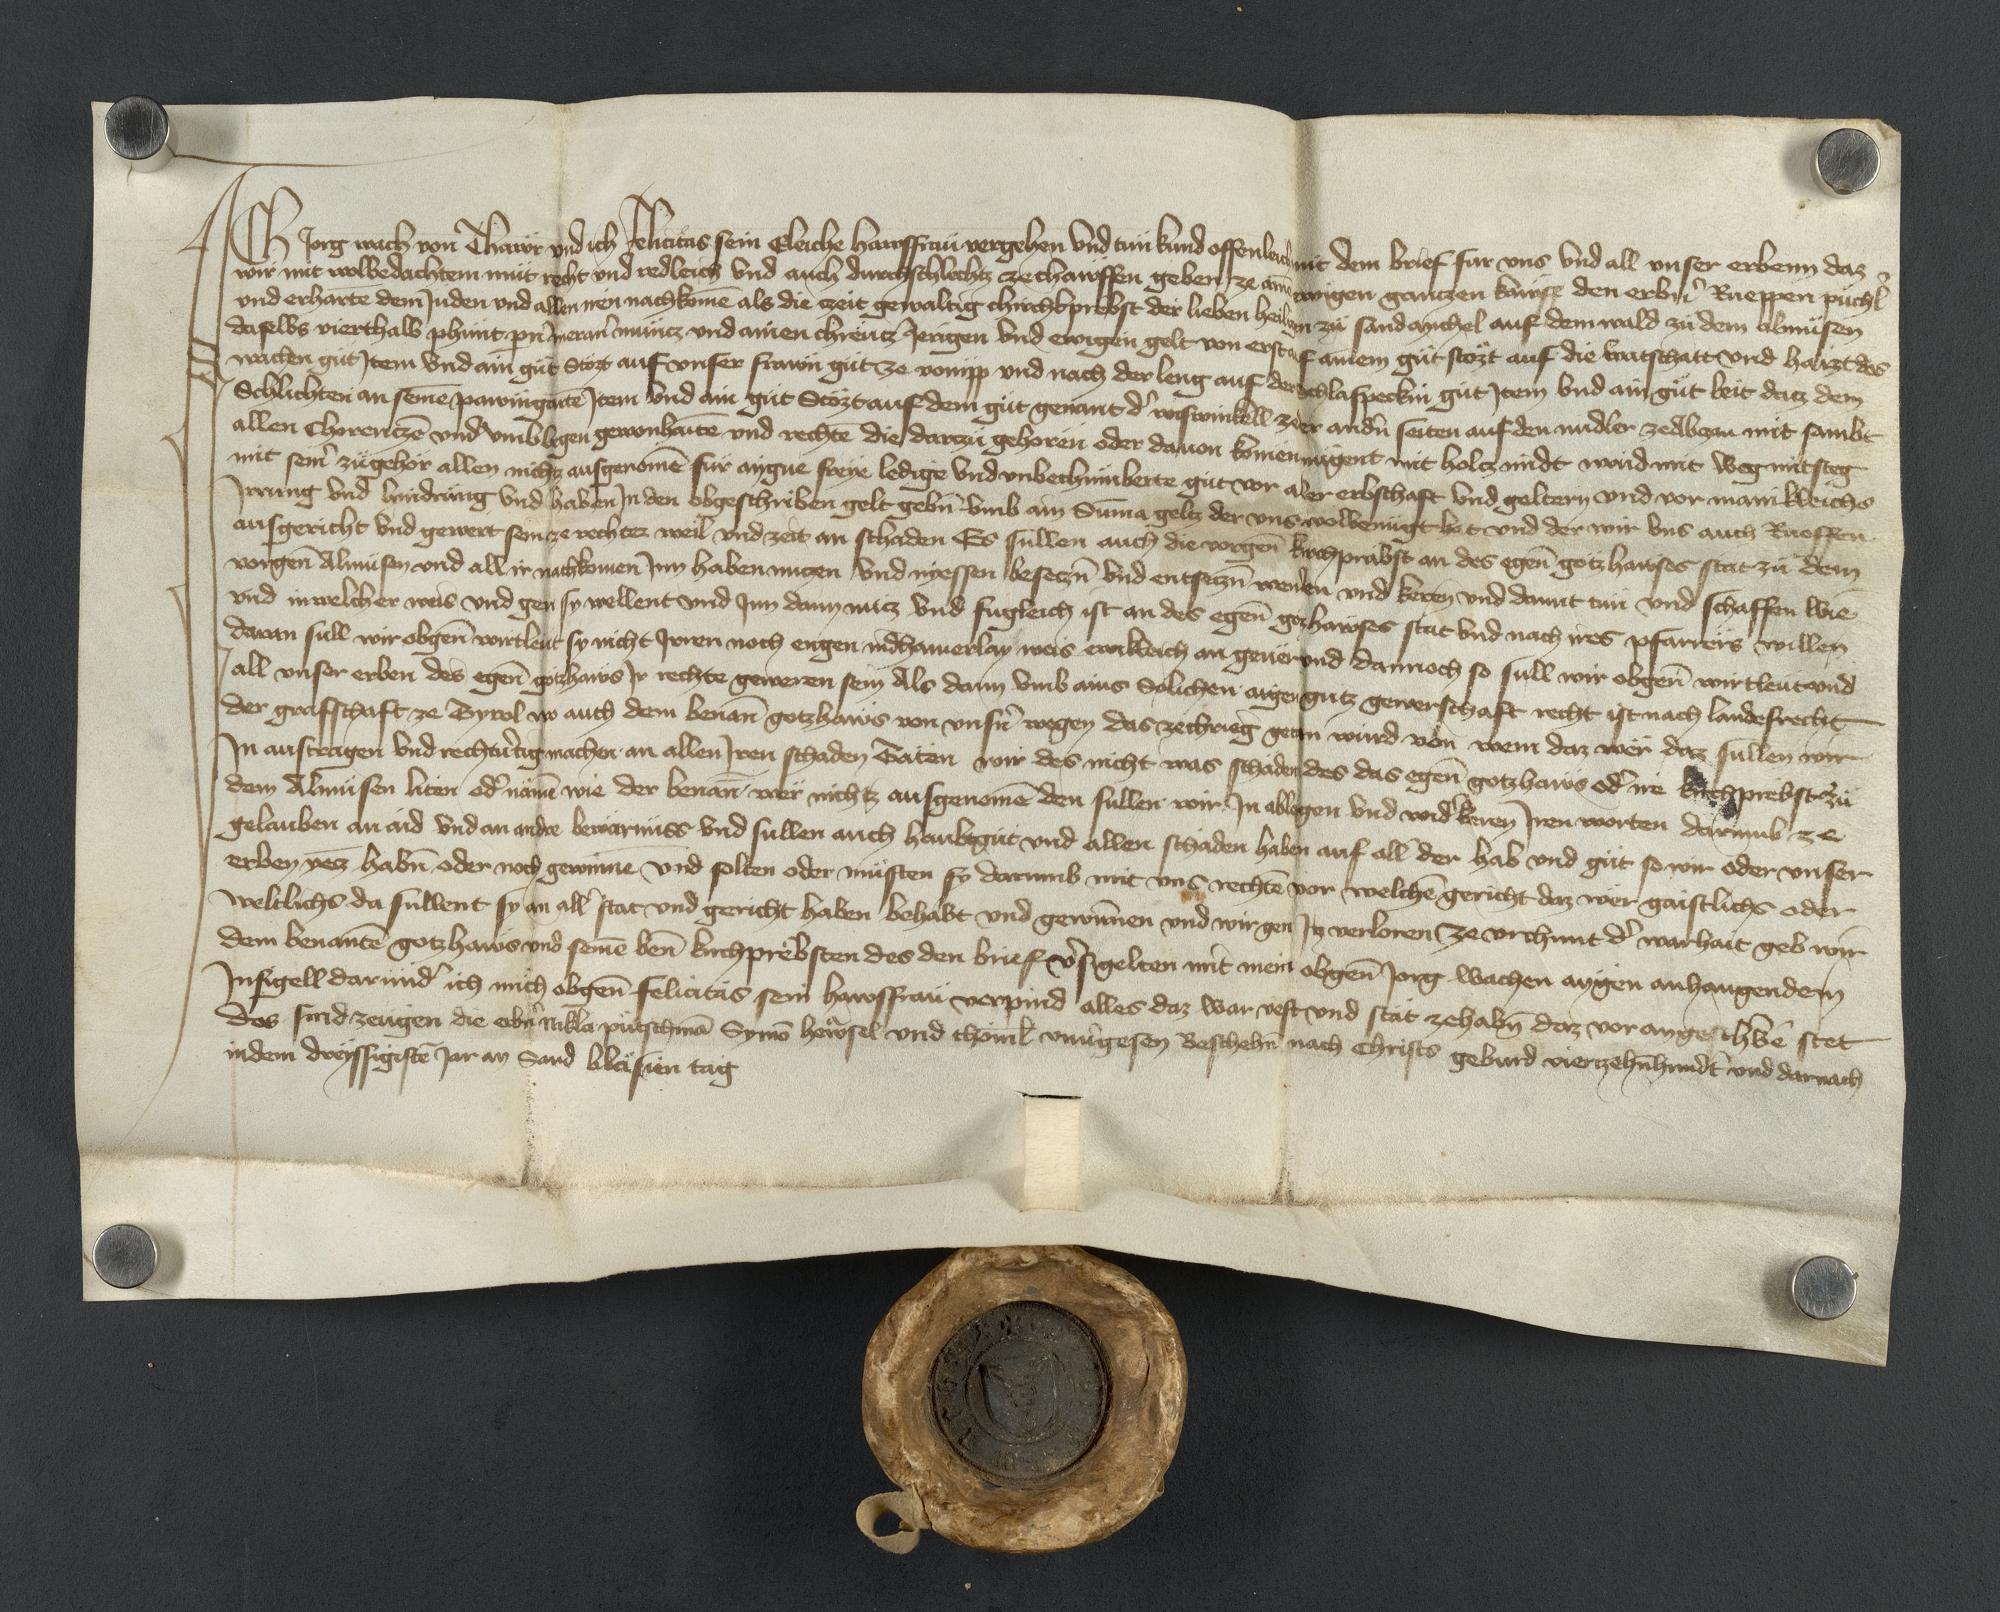 Ich Jorg wach von Thawr vnd ich Felicitas sein Eleiche hawsfraü vergehen vnd tün kund offenleich mit dem brief für vns vnd all vnser erbenn daz
wir mit wolbedachtem müt recht vnd redleich vnd auch durchschlechtz zechawffen geben ze ainē ewigen gantzen kawffe den erbn̄ Rueppen püchl̄
vnd erharte dem Juden vnd allen nachkomē als die zeit gewaltig chirchbrebst der lieben heiligen zü sand michel auf dem wald zü dem almüsen
daselbs vierthalb phünt pn̄ meran̄ münicz vnd ainen chreücz Jerigen vnd ewigen gelt von erst auf ainem güt stözt auf die watschatt vnd haizt des
wachen güt Jtem vnd ain güt Stözt auf vnser frawn güt ze vomipp vnd nach der leng auf der Schlaspeckin güt Jtem vnd ain güt leit datz dem
Schlichten an seinē pawmgartē Jtem vnd ain güt Stözt auf dem güt genant d' weswinkell ze der andn̄ seiten auf den midler mit sambt
allen Chrentzē vnd gewonhaitē vnd rechtē die darczü gehören oder dauon komen mügent mit holcz waid mit weg mit steg
mit sein̄ zügehör allen nichtz ausgenomē für aygne freye ledige vnd vnbechümberte güt vor aller erbschaft vnd geltern vnd vor manikleichs
Jrrung vnd hindrüng vnd haben Jn den obgeschriben gelt gebn̄ vmb ain Suma geltz der vns wolbenügt hat vnd der wir vns auch Rueffen
ausgericht vnd gewert sein ze rechter weil vnd zeit an schaden Es süllen auch die vorgen̄ kirchpräbst an des egen̄ gotzhawses stat zü dem
vorgen̄ Almüsen vnd all ir nachkomen Jnn haben nutzen vnd nyessen besetzn̄ vnd entsetzn̄ wenden vnd keren vnd damit tün vnd schaffen wie
vnd in welcher weis vnd gen sy wellent vnd Jnn dann nütz vnd fugleich ist an des egen̄ gotzhawses stat vnd nach ires pfarrers willen
daran süll wir obgen̄ wirtleüt sy nicht Jrren noch engen in dhainerlay weis ewikleich an geuer vnd dannoch so süll wir obgen̄ wirtleüt vnd
all vnser erben des egen̄ gotzhaws Jr rechte geweren sein Als dann vmb ains Solichen aigen gutz gewerschaft recht ist nach landesrecht
der grafschaft ze Tyrol wo auch dem benan̄ gotzhaws von vnsn̄ wegen das zechrieg getan würd von wem daz wer daz süllen wir
Jn austragen vnd rechtuertig machen an allen Jren schaden Täten wir des nicht was schaden des das egen̄ gotzhaws od' ire kirchprebst zü
dem Almüsen liten od' nämn̄ wie der benan̄ wer nichtz ausgenomē den süllen wir Jn ablegen vnd wid'keren Jren worten darumb ze
gelauben an aid vnd an andre bewärnüss vnd süllen auch haubtgüt vnd allen schäden haben auf all der hab vnd güt so wir oder vnser
erben yetz habn̄ oder noch gewinnē vnd solten oder müsten sy darumb mit vns rechtē vor welchē gericht daz wër gaistlichs oder
weltlichs da süllent sy an all' stat vnd gericht haben behabt vnd gewunnen vnd wir gen Jn verloren Ze vrchünt d' warhait geb wir
dem benantē gotzhaws vnd seinē ben̄ kirchprëbsten des den brief v'sigelten mit mein obgen̄ Jorg wachen aygen anhangendem
Jnsigell darund' ich mich obgen̄ felicitas sein hawsfraü verpind alles daz war vest vnd stät zehabn̄ daz vor angeschribē stet
Des sind zeügen die erbn̄ Nikla pütschmā Symō hewsel vnd thomł Beschehn̄ nach Christs gebürd vierzehnhundt vnd darnach
in dem dreyssigistē Jar an Sand bläsien tag